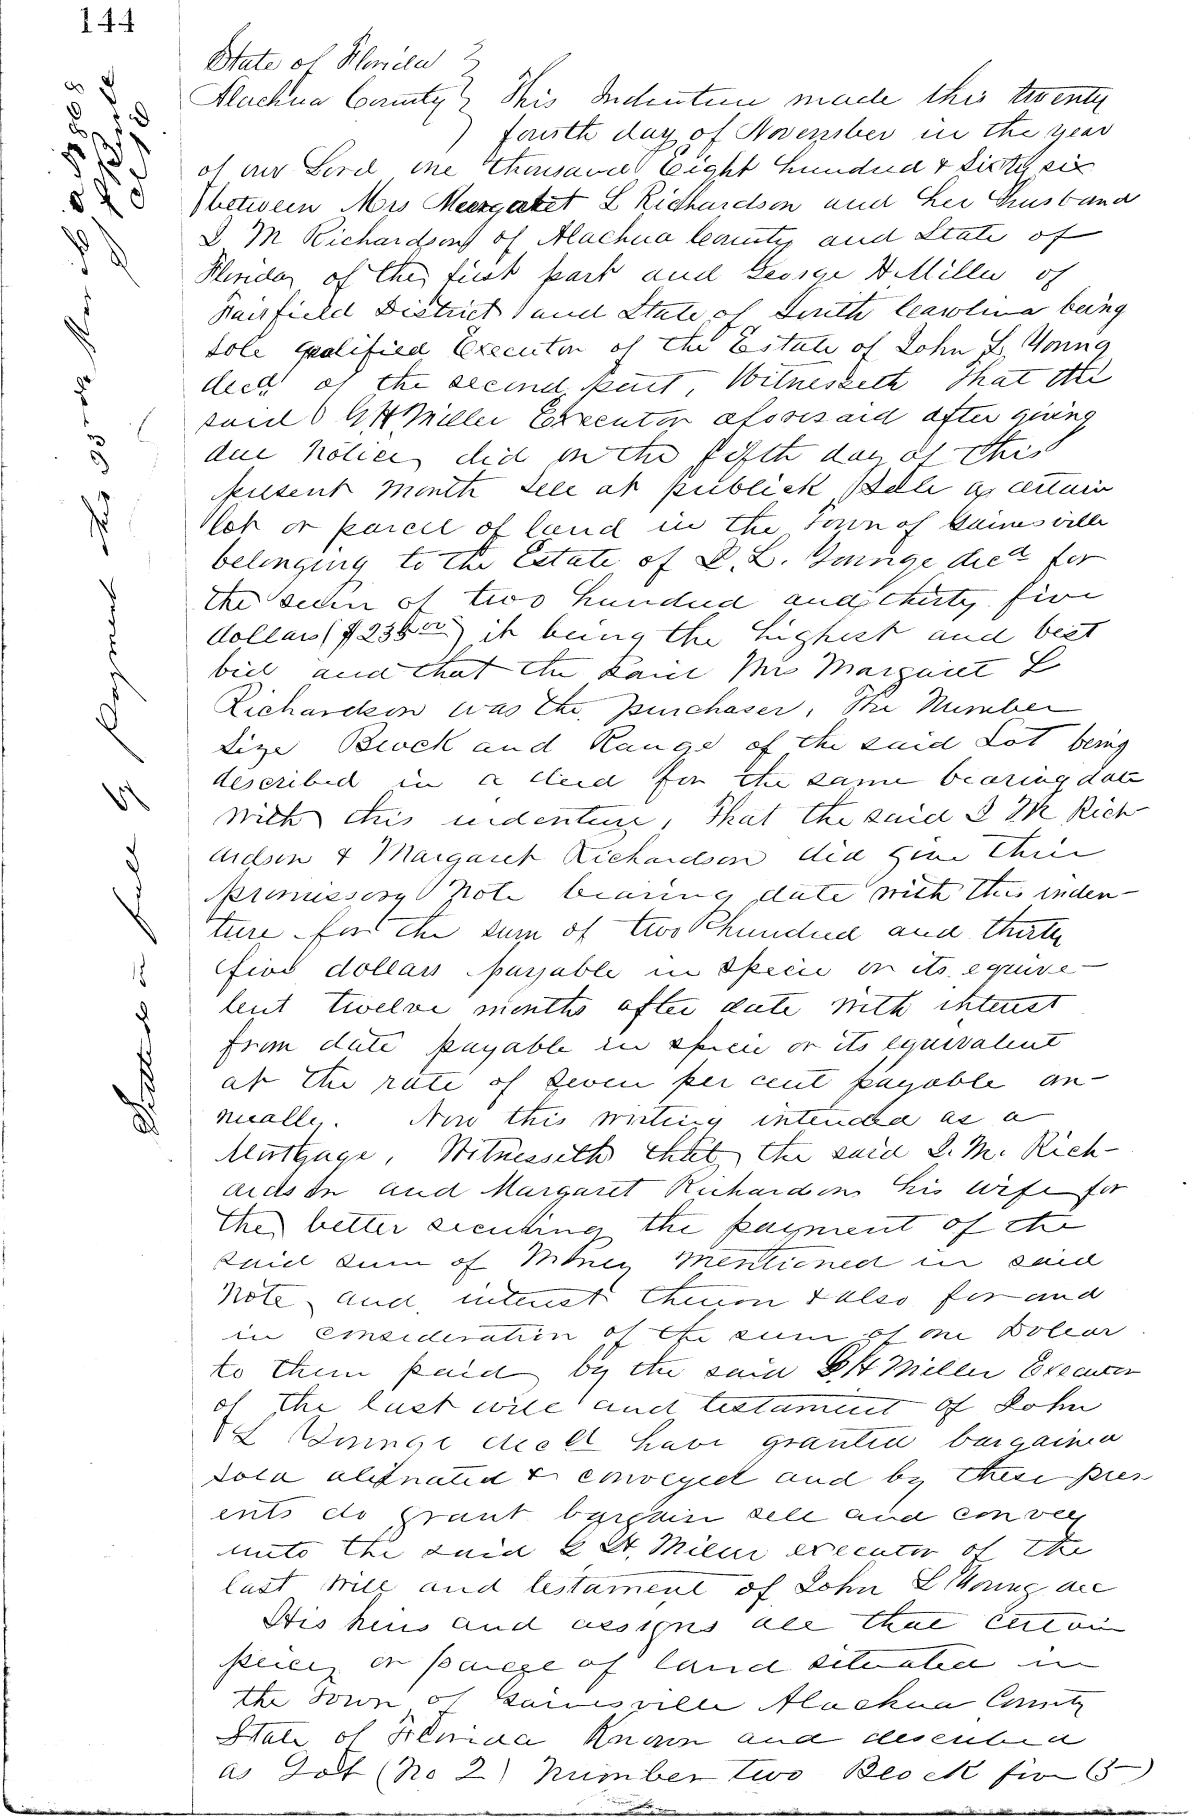 144
State of Florida }
Alachua County } This Indenture made this twenty
fourth day of November in the year
of our Lord one thousand Eight hundred & Sixty six
between Mrs Margaret L Richardson and her husband
I M Richardson of Alachua County and State of
Florida of the first part and George H Miller of
Fairfield District and State of South Carolina being
sole qualified Executor of the Estate of John L Young
decd of the second part, Witnesseth that the
said G H Miller Executor aforesaid after giving
due notice did on the fifth day of this
present month sell at publick Sale a certain
lot or parcel of land in the Town of Gainesville
belonging to the Estate of J. L. Younge decd for
the sum of two hundred and thirty five
dollars ($235 00) it being the highest and best
bid and that the said Mrs Margaret L
Richardson was the purchaser, The Number
Size Block and Range of the said Lot being
described in a deed for the same bearing date
with this indenture, That the said I M Rich
ardson & Margaret Richardson did give their
promissory Note bearing date with this inden-
ture for the sum of two hundred and thirty
five dollars payable in specie or its equive-
lent twelve months after date with interest
from date payable in specie or its equivalent
at the rate of seven per cent payable an-
nually. Now this writing intended as a
Mortgage, Witnesseth that the said I. M. Rich-
ardson and Margaret Richardson his wife for
the better securing the payment of the
said sum of Money mentioned in said
Note and interest thereon & also for and
in consideration of the sum of one Dollar
to them paid by the said G H Miller Executor
of the last will and testament of John
L Younge decd have granted bargained
sold alienated & conveyed and by these pres
ents do grant bargain sell and convey
unto the said G H. Miller executor of the
last will and testament of John L Young dec
His heirs and assigns all that certain
peice or parcel of land situated in
the Town of Gainesville Alachua County
State of Florida Known and described
as Lot (No 2) Number two Block five (5)
in full by payment this 23rd
1868